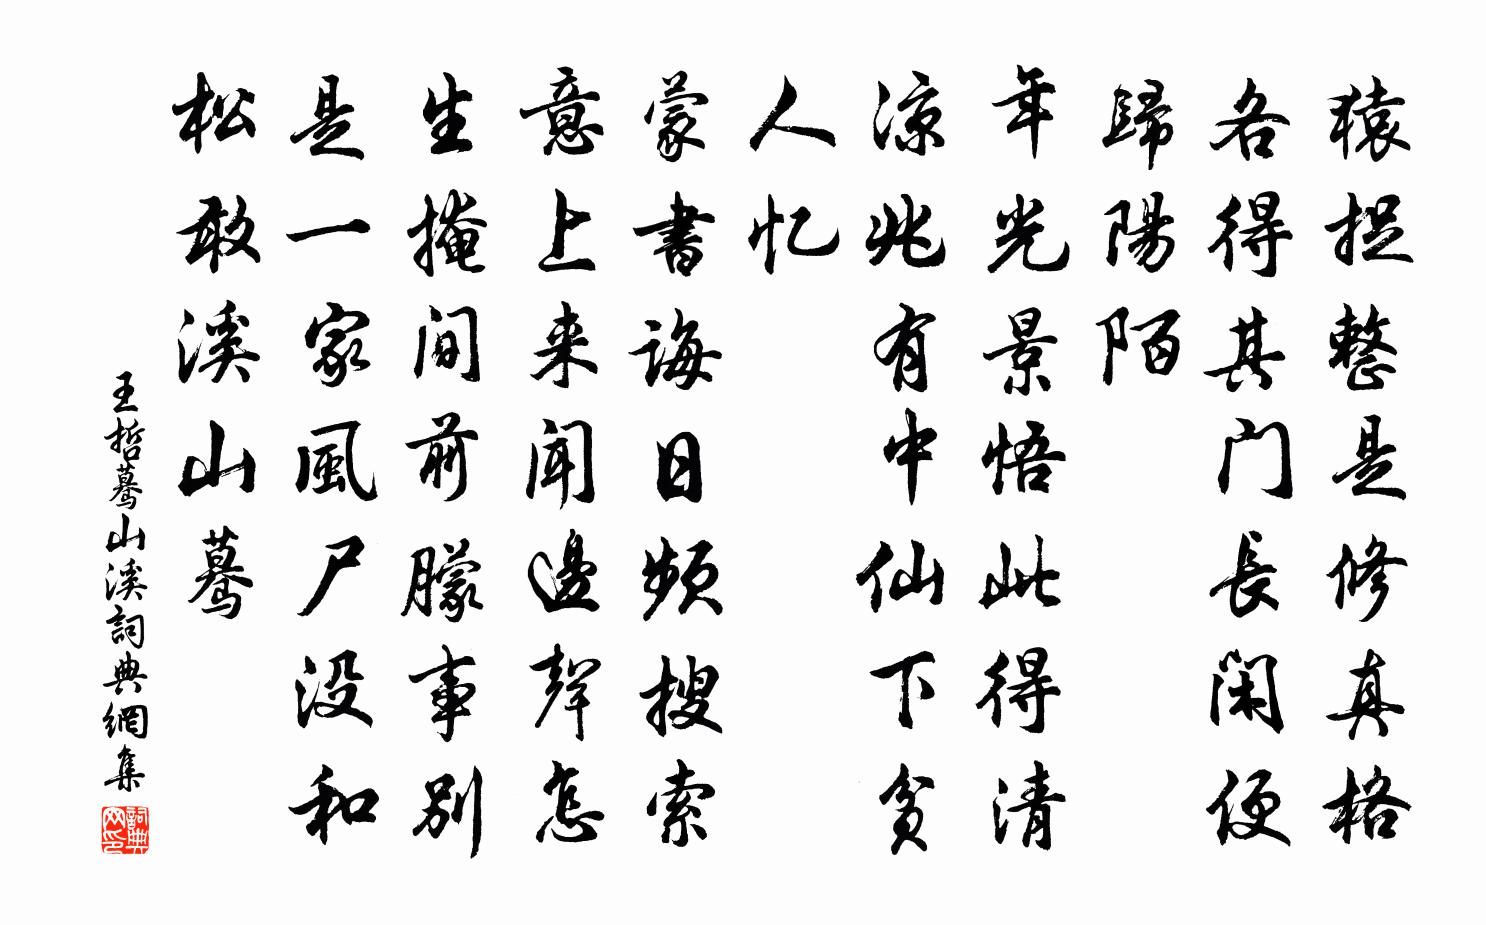 猿捉整是修真格
各得其门長闲便
歸陽陌
年光景悟此得清
凉兆有中仙下贫
人忆
蒙書诲日频搜索
意上来闻邊聲怎
生掩间前朦事別
是一家風尸没和
松敢溪山蓦
王哲蓦山溪詞典網集
詞典网印